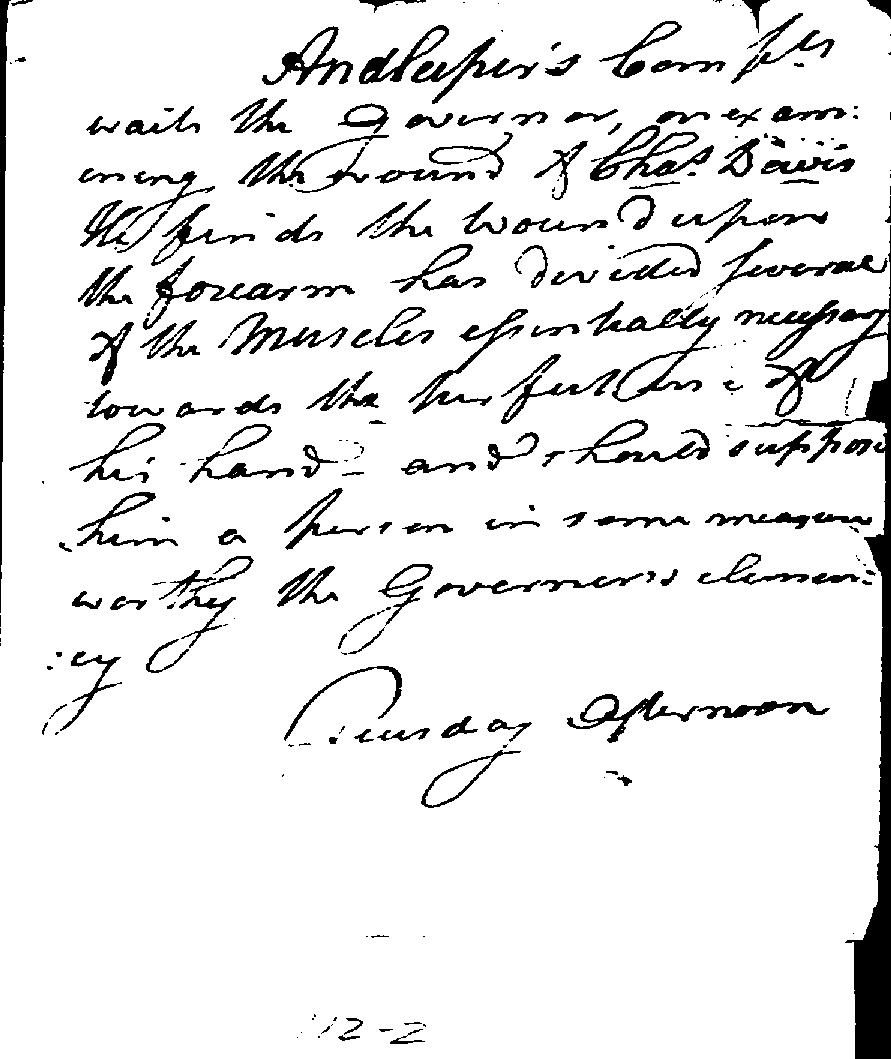 And Leeper's Compts
waits the Governor, on exam:
ining the wound of Chas. Davis
He finds the wound upon
the forearm has divided several
of the Muscles essentially necessary
towards the perfect use of
his hand - and should suppose
him a person in some measure
worthy the Governers clemen:
:cy
Tuesday Afternoon
112-2